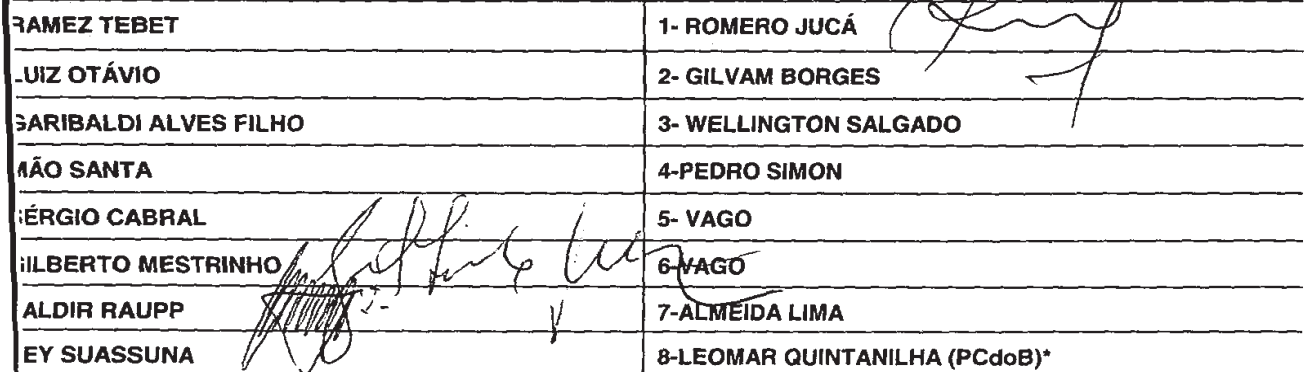 RAMEZ TEBET 1- ROMERO JUCÁ
LUIZ OTÁVIO 2- GILVAM BORGES
GARIBALDI ALVES FILHO 3- WELLINGTON SALGADO
MÃO SANTA 4-PEDRO SIMON
SÉRGIO CABRAL 5- VAGO
GILBERTO MESTRINHO 6-VAGO
ALDIR RAUPP 7-ALMEIDA LIMA
EY SUASSUNA 8-LEOMAR QUINTANILHA (PCdoB)*